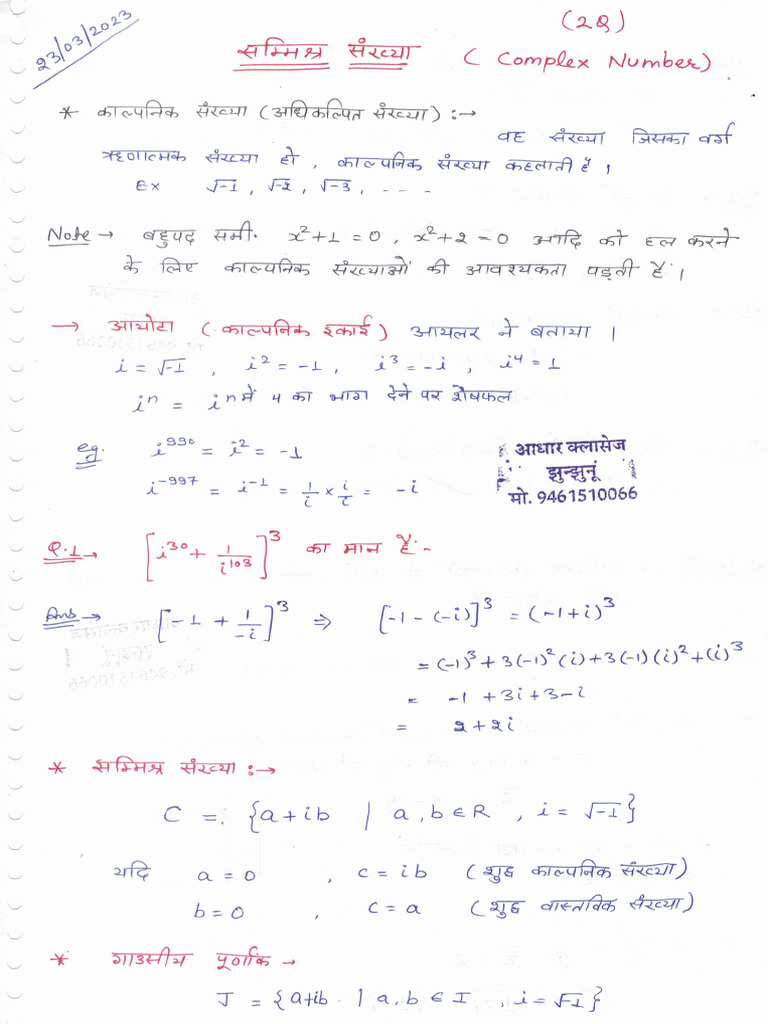 23/03/2023
(2Q)
सम्मिश्र संख्या ( Complex Number)
* काल्पनिक संख्या (अधिकल्पित संख्या) :→
वह संख्या जिसका वर्ग
ऋणात्मक संख्या हो , काल्पनिक संख्या कहलाती है ।
Ex √-1 , √-2 , √-3 , - - -
Note → बहुपद समी. x²+1=0 , x²+2=0 आदि को हल करने
के लिए काल्पनिक संख्याओं की आवश्यकता पड़ती है ।
→ आयोटा ( काल्पनिक इकाई ) आयलर ने बताया ।
i = √-1 , i² = -1 , i³ = -i , i⁴ = 1
iⁿ = iⁿ में 4 का भाग देने पर शेषफल
eg. i⁹⁹⁰ = i² = -1
i⁻⁹⁹⁷ = i⁻¹ = 1/i × i/i = -i
आधार क्लासेज
झुन्झुनूं
मो. 9461510066
Q.1 → [i³⁰ + 1/i¹⁰³]³ का मान है:-
Ans → [-1 + 1/-i]³ ⇒ [-1-(-i)]³ = (-1+i)³
= (-1)³ + 3(-1)² (i) + 3(-1) (i)² + (i)³
= -1 + 3i + 3 - i
= 2 + 2i
* सम्मिश्र संख्या :→
C =: {a+ib | a, b ∈ R , i = √-1}
यदि a = 0 , c = ib (शुद्ध काल्पनिक संख्या)
b = 0 , c = a (शुद्ध वास्तविक संख्या)
* गाउसीय पूर्णांक →
J = {a+ib | a, b ∈ I , i = √-1}